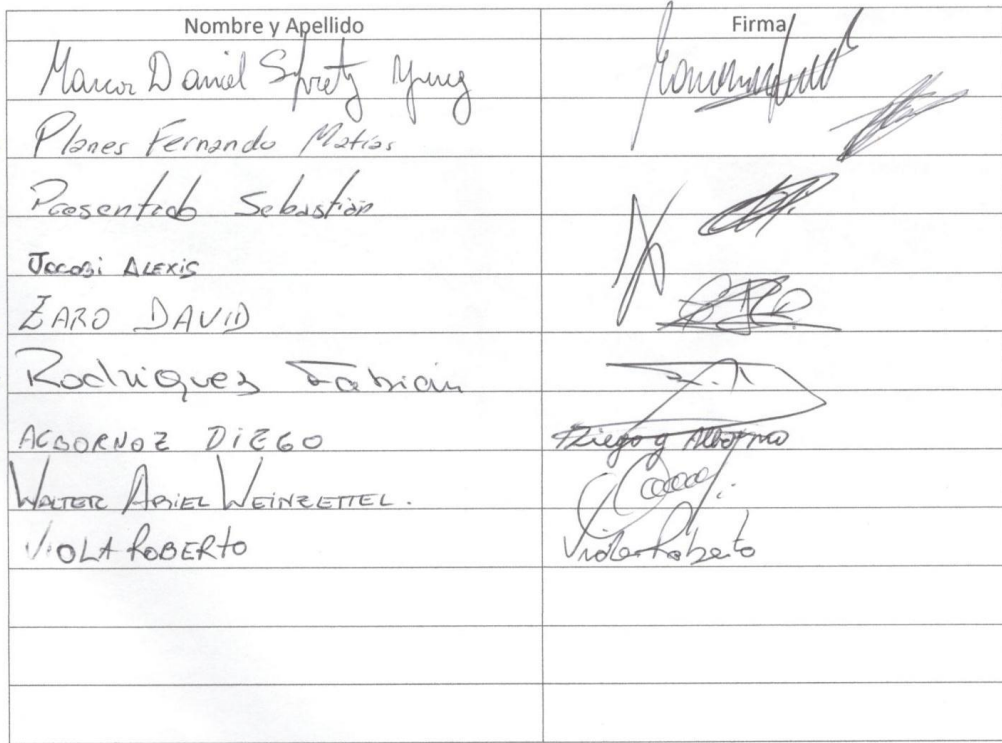 Nombre y Apellido Firma
Marcos Daniel
Planes Fernando Matías
Sebastián
Jacobi ALEXIS
ZARO DAVID
Rodrigues Fabián
ALBORNOZ DIEGO Diego Albornoz
WALTER ARIEL WEINZETTEL.
VIOLA ROBERTO Viola Roberto